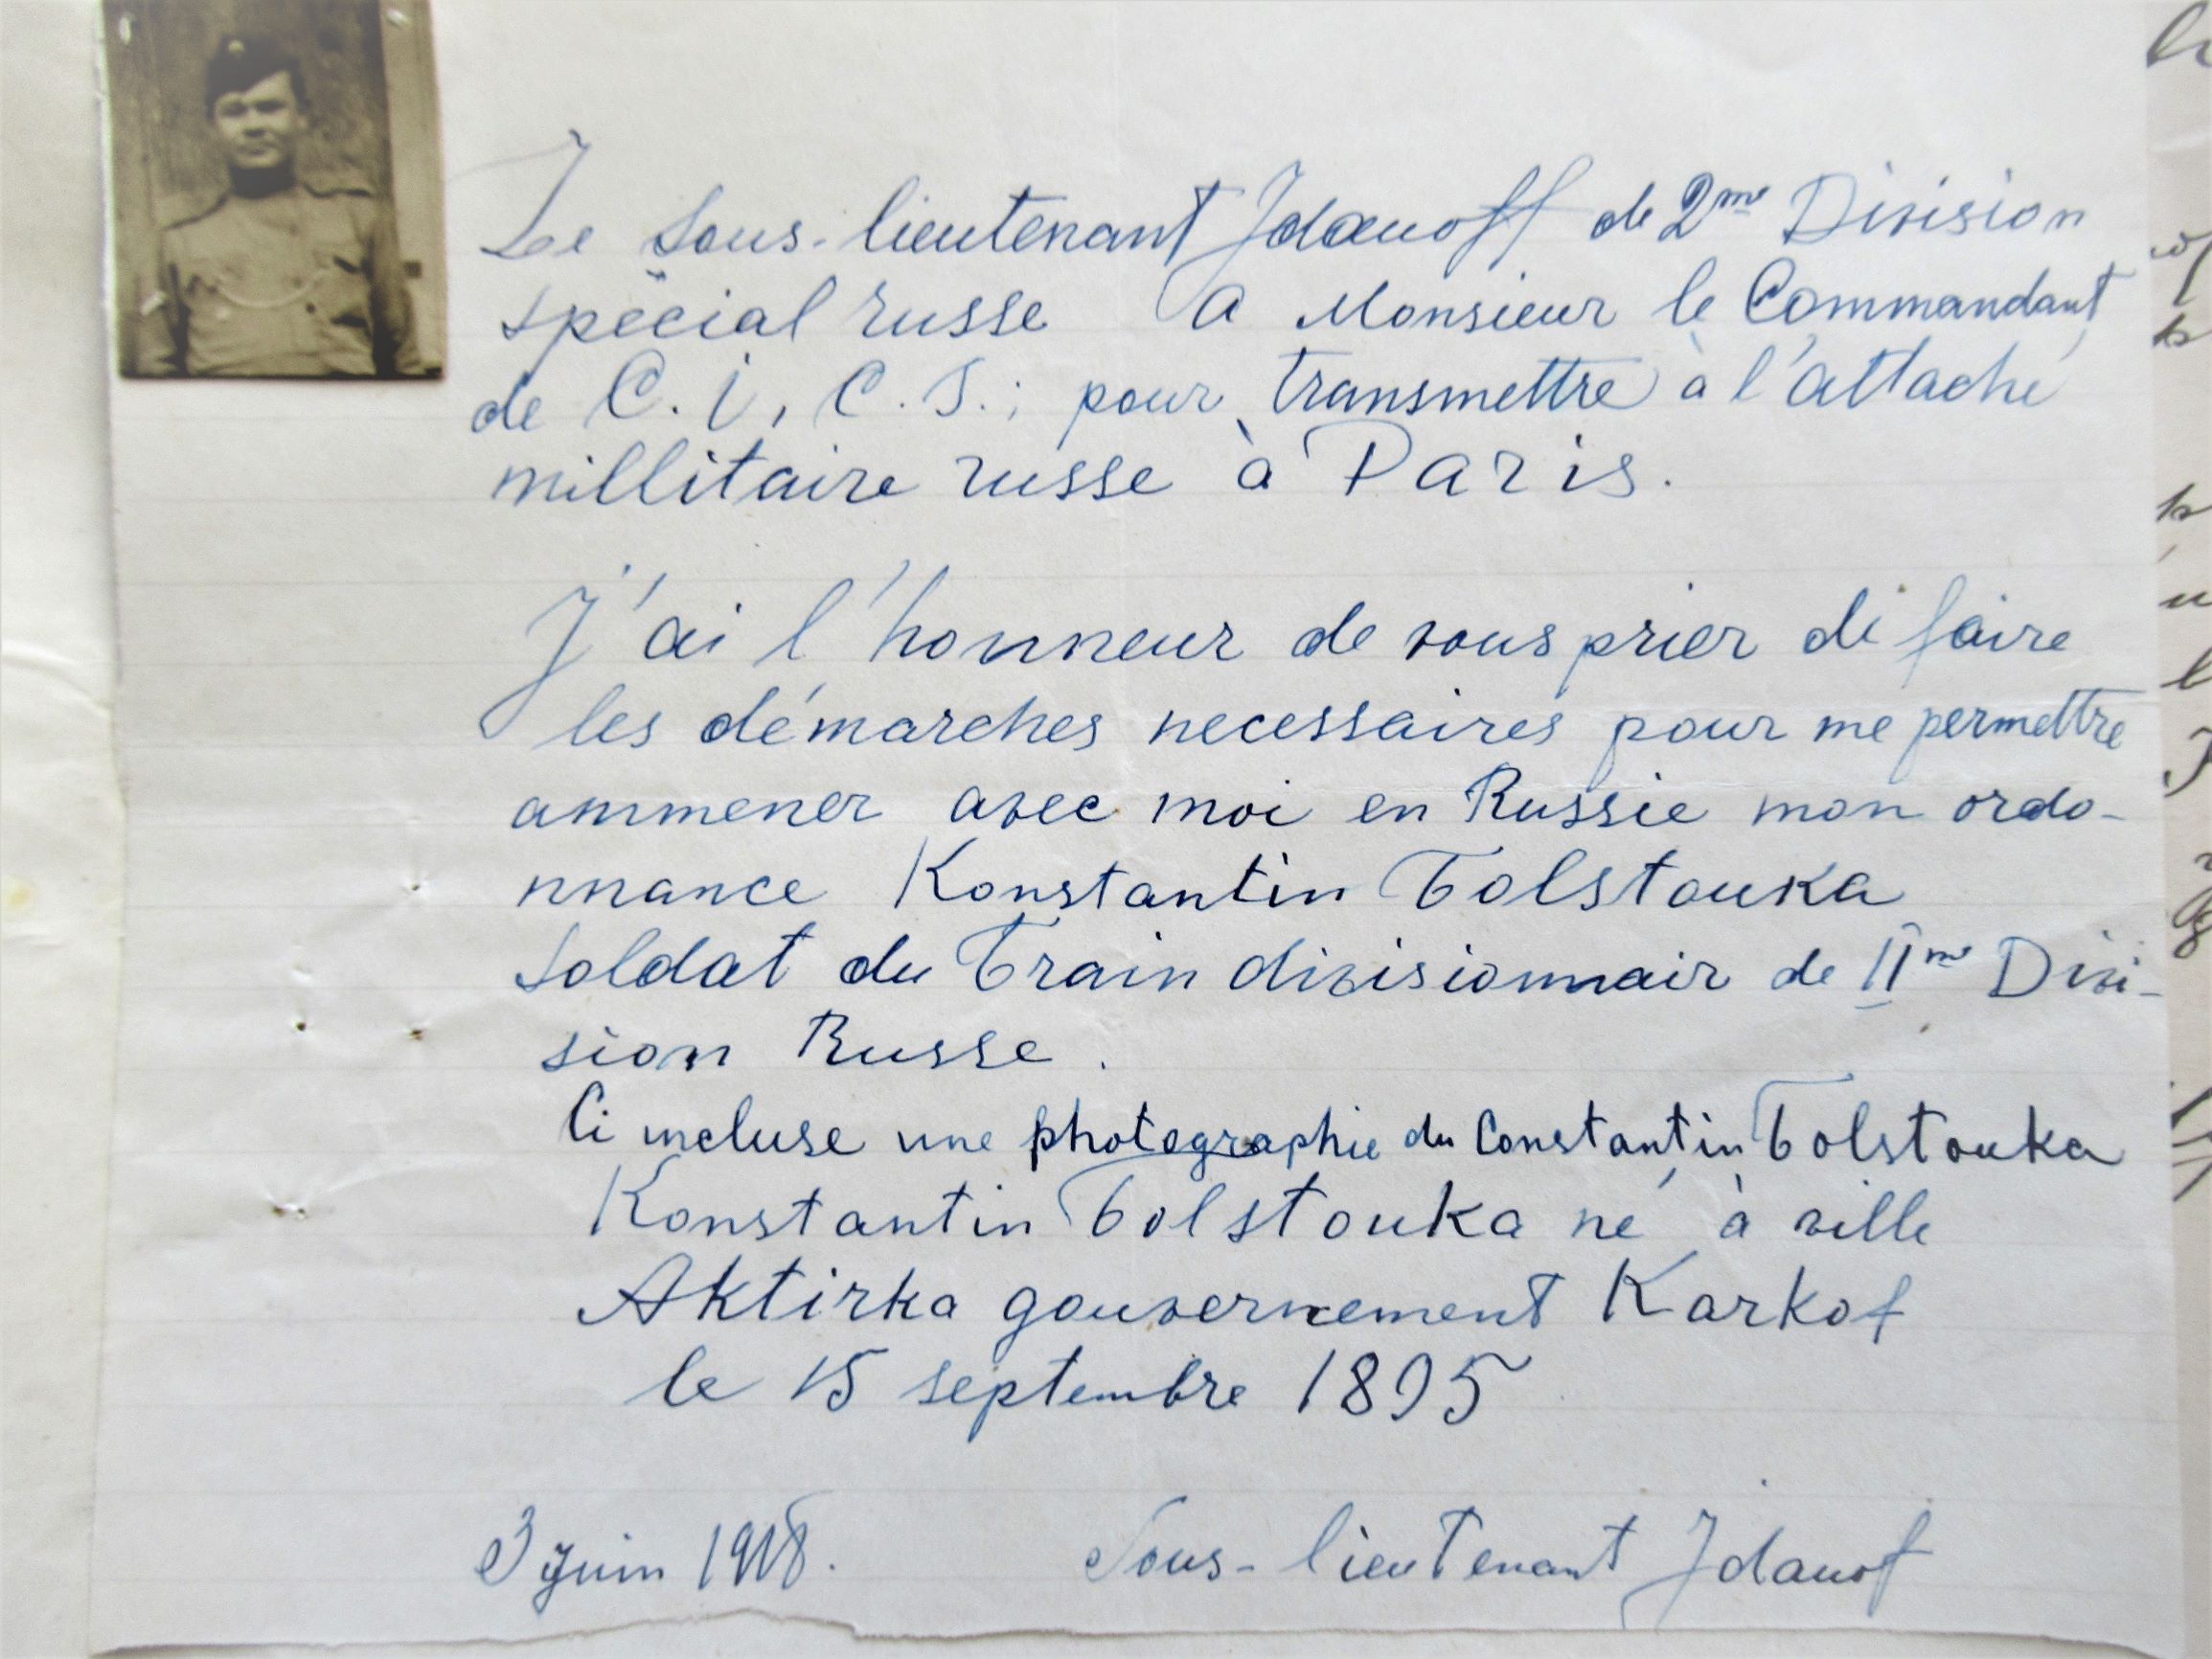 Le Sous-lieutenant Jdanoff de 2me Division
spécial russe A Monsieur le Commandant
de C. I. C. S.; pour transmettre à l'attaché
millitaire russe à Paris.
J'ai l'honneur de vous prier de faire
les démarches necessaires pour me permettre
ammener avec moi en Russie mon ordo-
nnance Konstantin Tolstouka
soldat du Train divisionnair de IIme Divi-
sion Russe.
Ci incluse une photographie du Constantin Tolstouka
Konstantin Tolstouka né à ville
Aktirka gouvernement Karkof
le 15 septembre 1895
3 juin 1918. Sous-lieutenant Jdanof